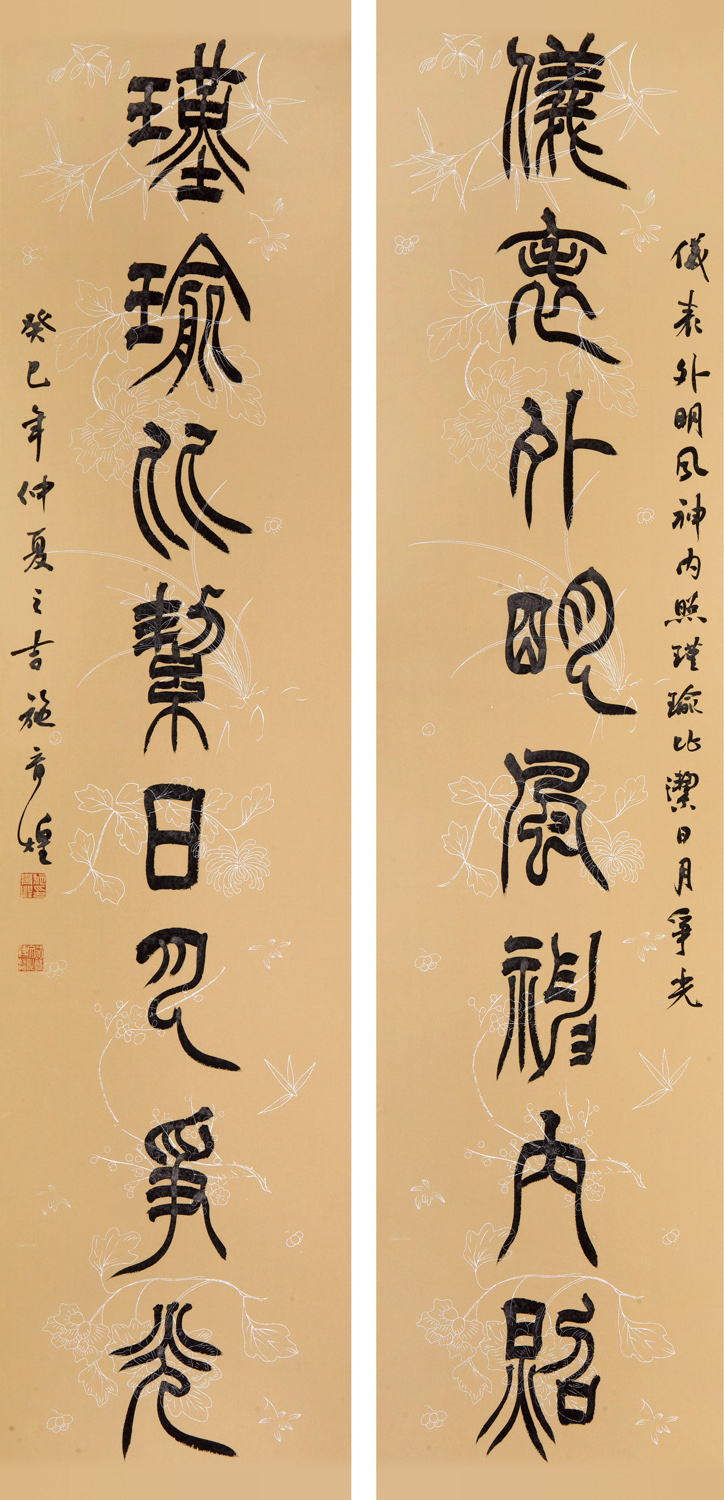 儀表外明風神内照瑾瑜比潔日月爭光
儀表外明風神内照
瑾瑜比潔日月爭光
癸巳年仲夏之吉施育煌